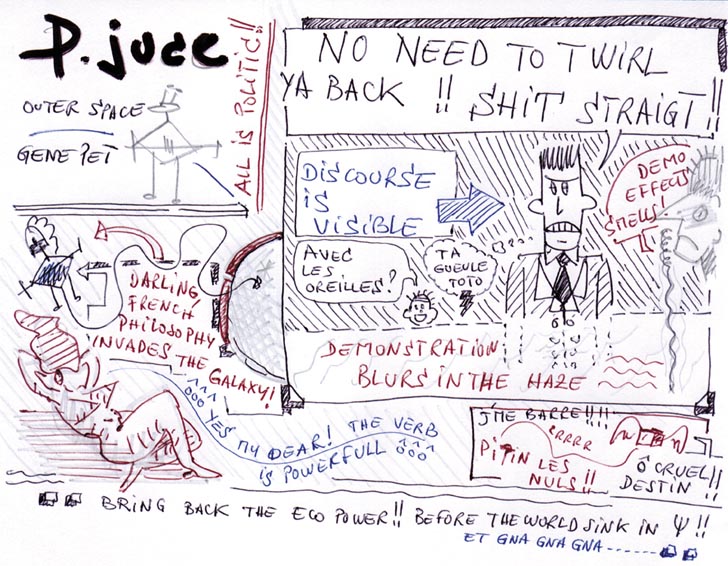 P. juce
OUTER SPACE
GENE PET
ALL IS POLITIC!!
NO NEED TO TWIRL
YA BACK !! SHIT STRAIGT !!
DISCOURSE
IS
VISIBLE
DEMO
EFFECTS
SMELLS!
AVEC
LES
OREILLES?
TA
GUEULE
TOTO
DARLING,
FRENCH
PHILOSOPHY
INVADES THE
GALAXY!
DEMONSTRATION
BLURS IN THE HAZE
YES MY DEAR! THE VERB
IS POWERFULL
J'ME BARRE!!!!
RRRR
PIPIN LES
NULS!!
Ô CRUEL
DESTIN!!
BRING BACK THE EGO POWER!! BEFORE THE WORLD SINK IN Ψ !!
ET GNA GNA GNA------